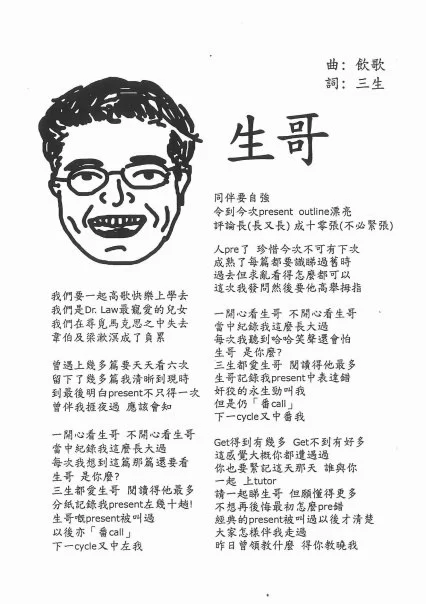 曲: 飲歌
詞: 三生
生哥
我們要一起高歌快樂上學去
我們是Dr. Law最寵愛的兒女
我們在尋覓馬克思之中失去
韋伯及梁漱溟成了負累
曾遇上幾多篇要天天看六次
留下了幾多篇我清晰到現時
到最後明白present不只得一次
曾伴我捱夜過 應該會知
一開心看生哥 不開心看生哥
當中紀錄我這麼長大過
每次我想到這篇那篇還要看
生哥 是你麼?
三生都愛生哥 閱讀得他最多
分紙記錄我present左幾十趟!
生哥嘅present被叫過
以後亦「番call」
下一cycle又中左我
同伴要自強
令到今次present outline漂亮
評論長(長又長) 成十零張(不必緊張)
人pre了 珍惜今次不可有下次
成熟了每篇都要識睇過舊時
過去但求亂看得怎麼都可以
這次我發問然後要他高舉拇指
一開心看生哥 不開心看生哥
當中紀錄我這麼長大過
每次我聽到哈哈笑聲還會怕
生哥 是你麼?
三生都愛生哥 閱讀得他最多
生哥記錄我present中表達錯
奸狡的永生勁叫我
但是仍「番call」
下一cycle又中番我
Get得到有幾多 Get不到有好多
這感覺大概你都遭遇過
你也要緊記這天那天 誰與你
一起 上tutor
請一起睇生哥 但願懂得更多
不想再後悔最初怎麼pre錯
經典的present被叫過以後才清楚
大家怎樣伴我走過
昨日曾領教什麼 得你教曉我